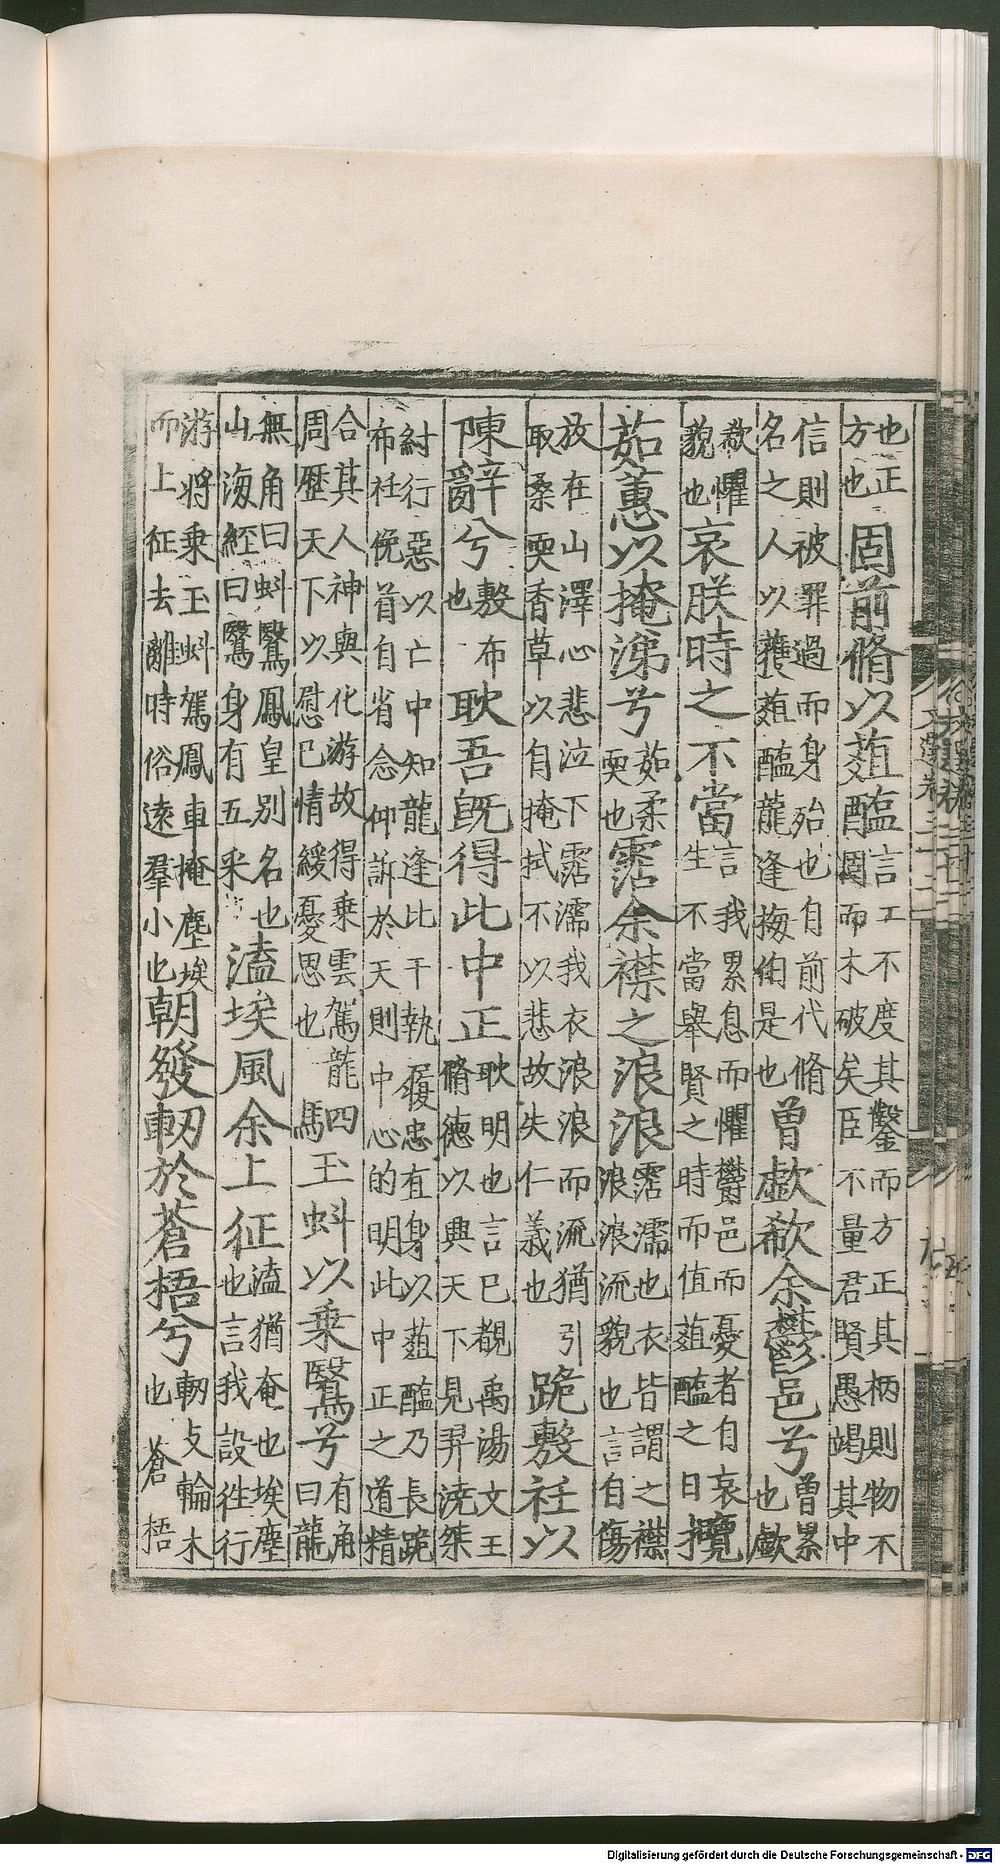 也正
方也
固前脩以葅醢
言工不度其鑿而方正其枘則物不
固而木破矣臣不量君賢愚竭其中
信則被罪過而身殆也自前代脩
名之人以獲葅醢龍逢梅伯是也
曾歔欷余鬱邑兮
曾累
也歔
欷懼
貌也
哀朕時之不當
言我累息而懼鬱邑而憂者自哀
生不當舉賢之時而值葅醢之日
攬
茹蕙以掩涕兮
茹柔
耎也
霑余襟之浪浪
霑濡也衣皆謂之襟
浪浪流貌也言自傷
放在山澤心悲泣下霑濡我衣浪浪而流猶引
取柔耎香草以自掩拭不以悲故失仁義也
跪敷衽以
陳辭兮
敷布
也
耿吾既得此中正
耿明也言己覩禹湯文王
脩德以興天下見羿澆桀
紂行惡以亡中知龍逢比干執履忠直身以葅醢乃長跪
布衽俛首自省念仰訴於天則中心的明此中正之道精
合真人神與化游故得乘雲駕龍
周歷天下以慰己情緩憂思也
駟玉虯以乘鷖兮
有角
曰龍
無角曰虯鷖鳳皇別名也
山海經曰鷖身有五采
溘埃風余上征
溘猶奄也埃塵
也言我設往行
游將乘玉虯駕鳳車掩塵埃
而上征去離時俗遠羣小也
朝發軔於蒼梧兮
軔攴輪木
也 蒼梧
文選卷三十二
Digitalisierung gefördert durch die Deutsche Forschungsgemeinschaft - DFG